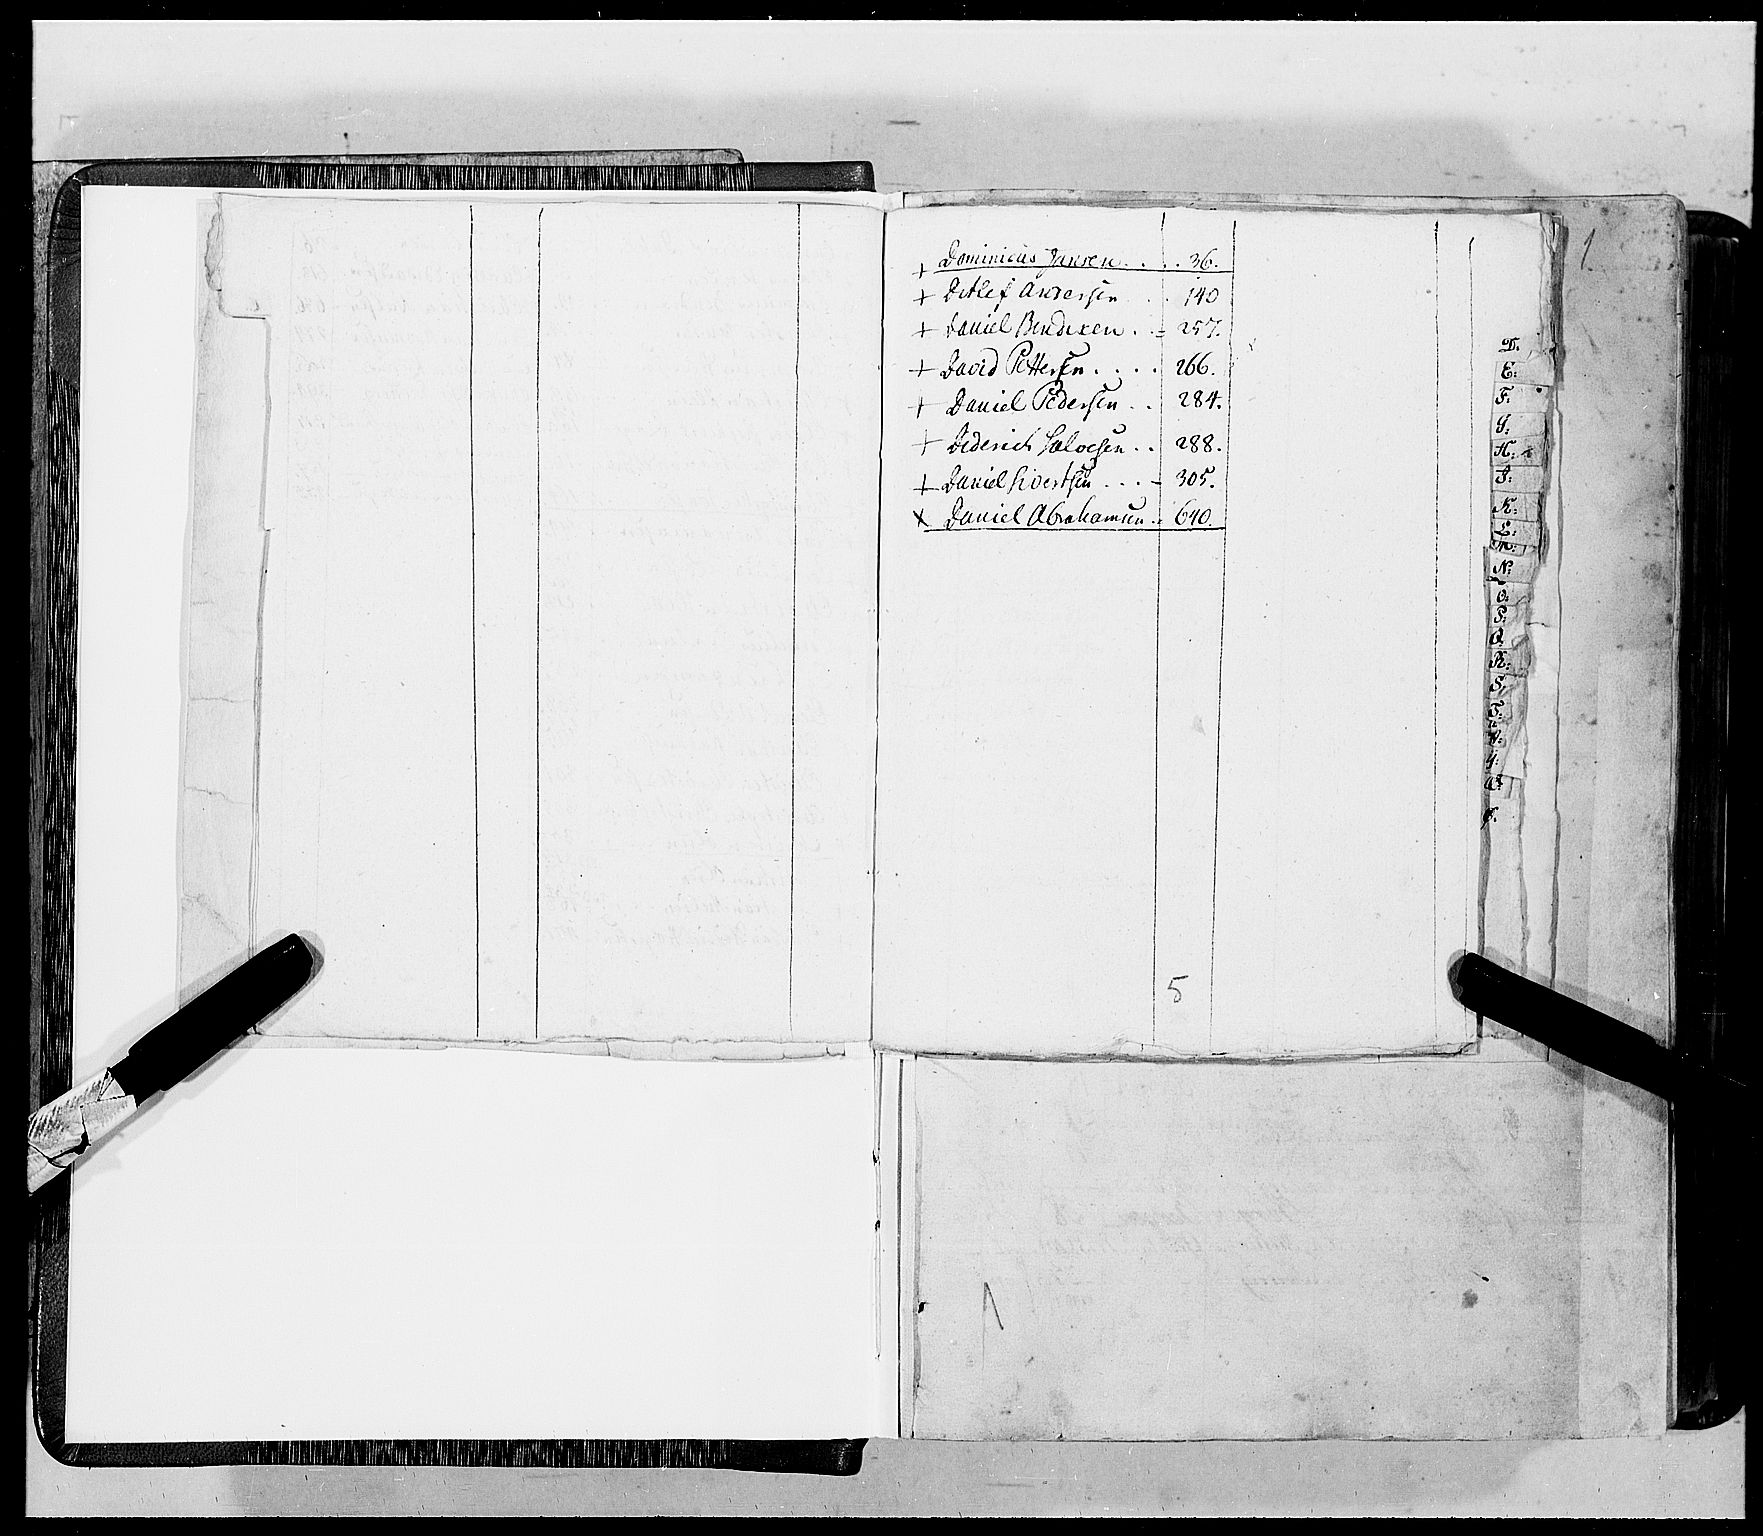 + Dominicus Jansen . . . . 36.
+ Detlef Andersen . . . 140
+ Daniel Bendixen . . = 257.
+ David Pettersen . . . . 266.
+ Daniel Pedersen . . 284.
+ Diderich Salvesen . . 288.
+ Daniel Sivertsen . . . - 305.
x Daniel Abrahamsen . . 640.
5
1
D:
E:
F:
G:
H:
J:
K:
L:
M:
N:
O:
P:
Q:
R:
S:
T:
1